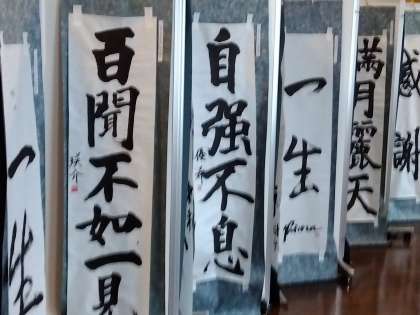 一生
百聞不如一見
瑛介
自强不息
一生
満月露天
感謝